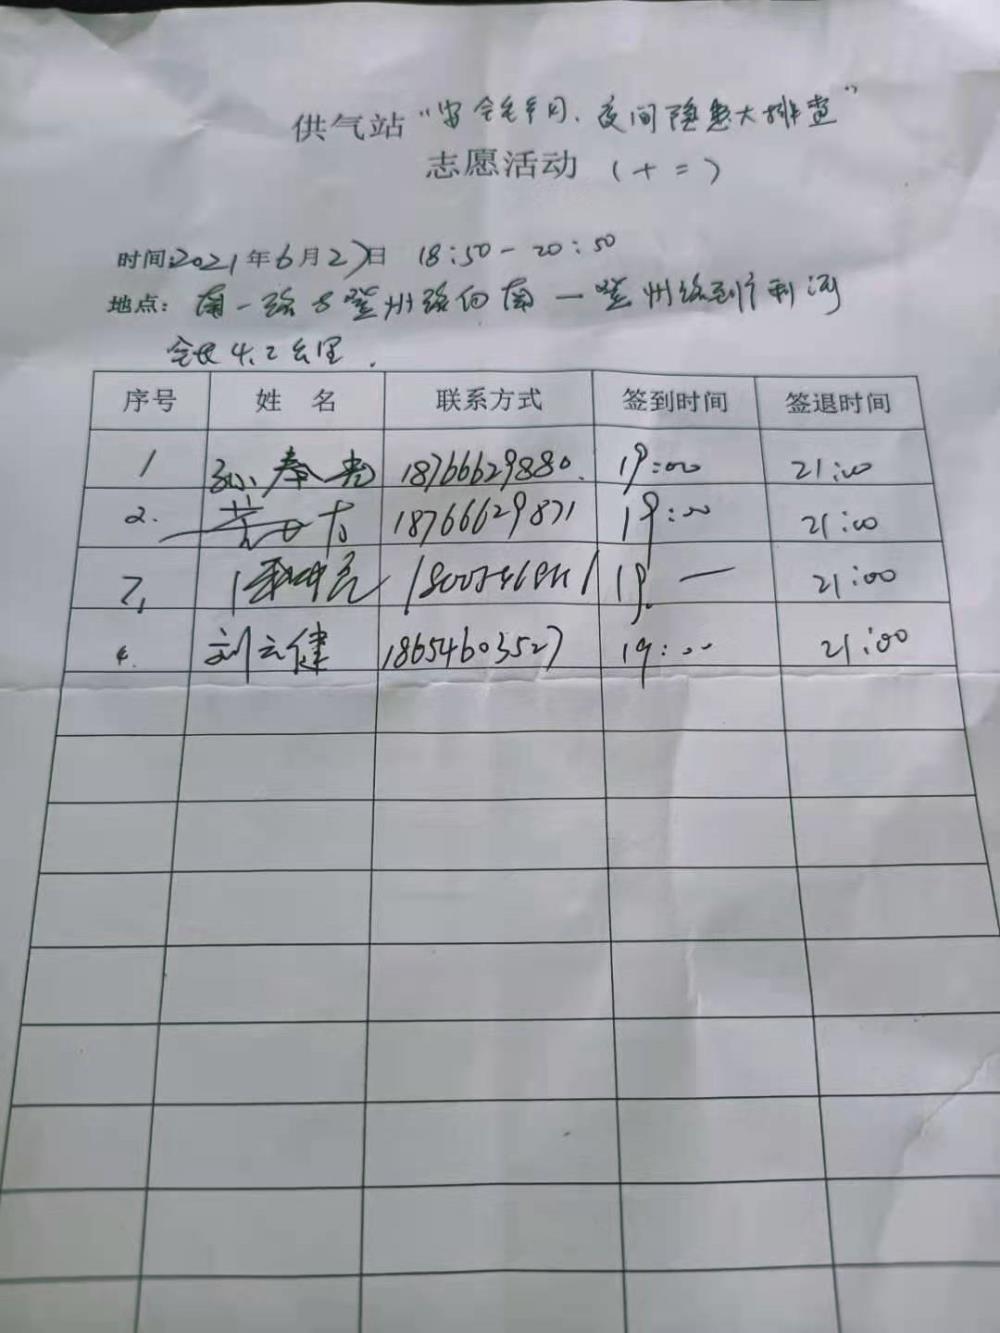 供气站“安全生产月、夜间隐患大排查”
志愿活动（十二）
时间:2021年6月27日 18:50-20:50
地点: 南一路与登州路向南—登州路到广利河
全长4.2公里.
序号 姓名 联系方式 签到时间 签退时间
1 孙奉尧 18766629880. 19:00 21:00
2. 18766629871 19:00 21:00
3, 19. — 21:00
4. 刘云健 18654603527 19:00 21:00